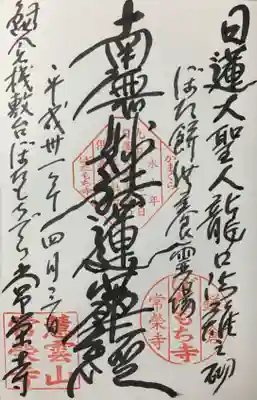 日蓮大聖人龍口法難之砌
ぼた餅供養霊場
南無妙法蓮華経
平成卅一年四月
桟敷台ぼたもちでら常栄寺
もち寺
常榮寺
慧雲山
常栄寺